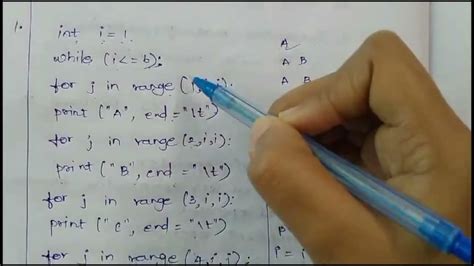 1.
int i = 1
while (i <= b):
for j in range (1,i,i):
print ("A", end = "\t")
for j in range (2,i,i):
print ("B", end = "\t")
for j in range (3,i,i):
print ("c", end = "\t")
for j in range (4,i,i):
A
A B
A B